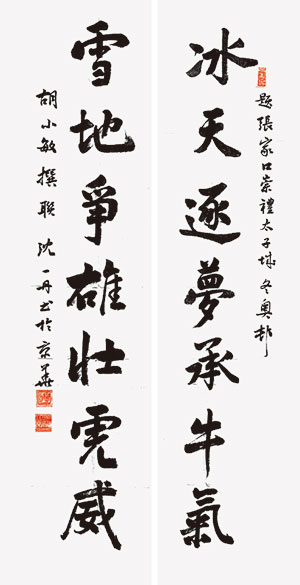 題張家口崇禮太子城冬奧邨
冰天逐夢承牛氣
雪地爭雄壯虎威
胡小敏撰聯 沈一丹书於京華